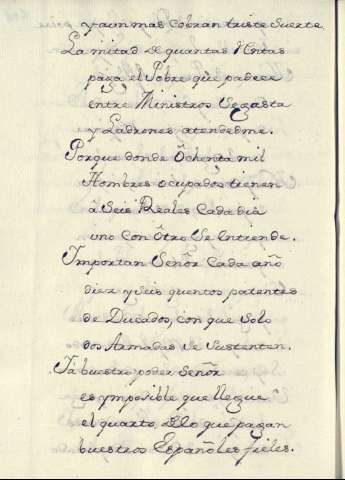 y aun mas cobran triste suerte
La mitad de quantas Rentas
paga el Pobre que padece
entre Ministros se gasta
y Ladrones atendedme.
Porque donde Ôchenta mil
Hombres ocupados tienen
â Seis Reales Cada dia
uno Con Ôtro Se entiende.
Ymportan Señor Cada año
diez y seis quentos patentes
de Ducados, con que Solo
dos Armadas se Sustenten.
Ya buestro poder Señor
es ymposible que llegue
el quarto, dlo que pagan
buestros Españoles fieles.